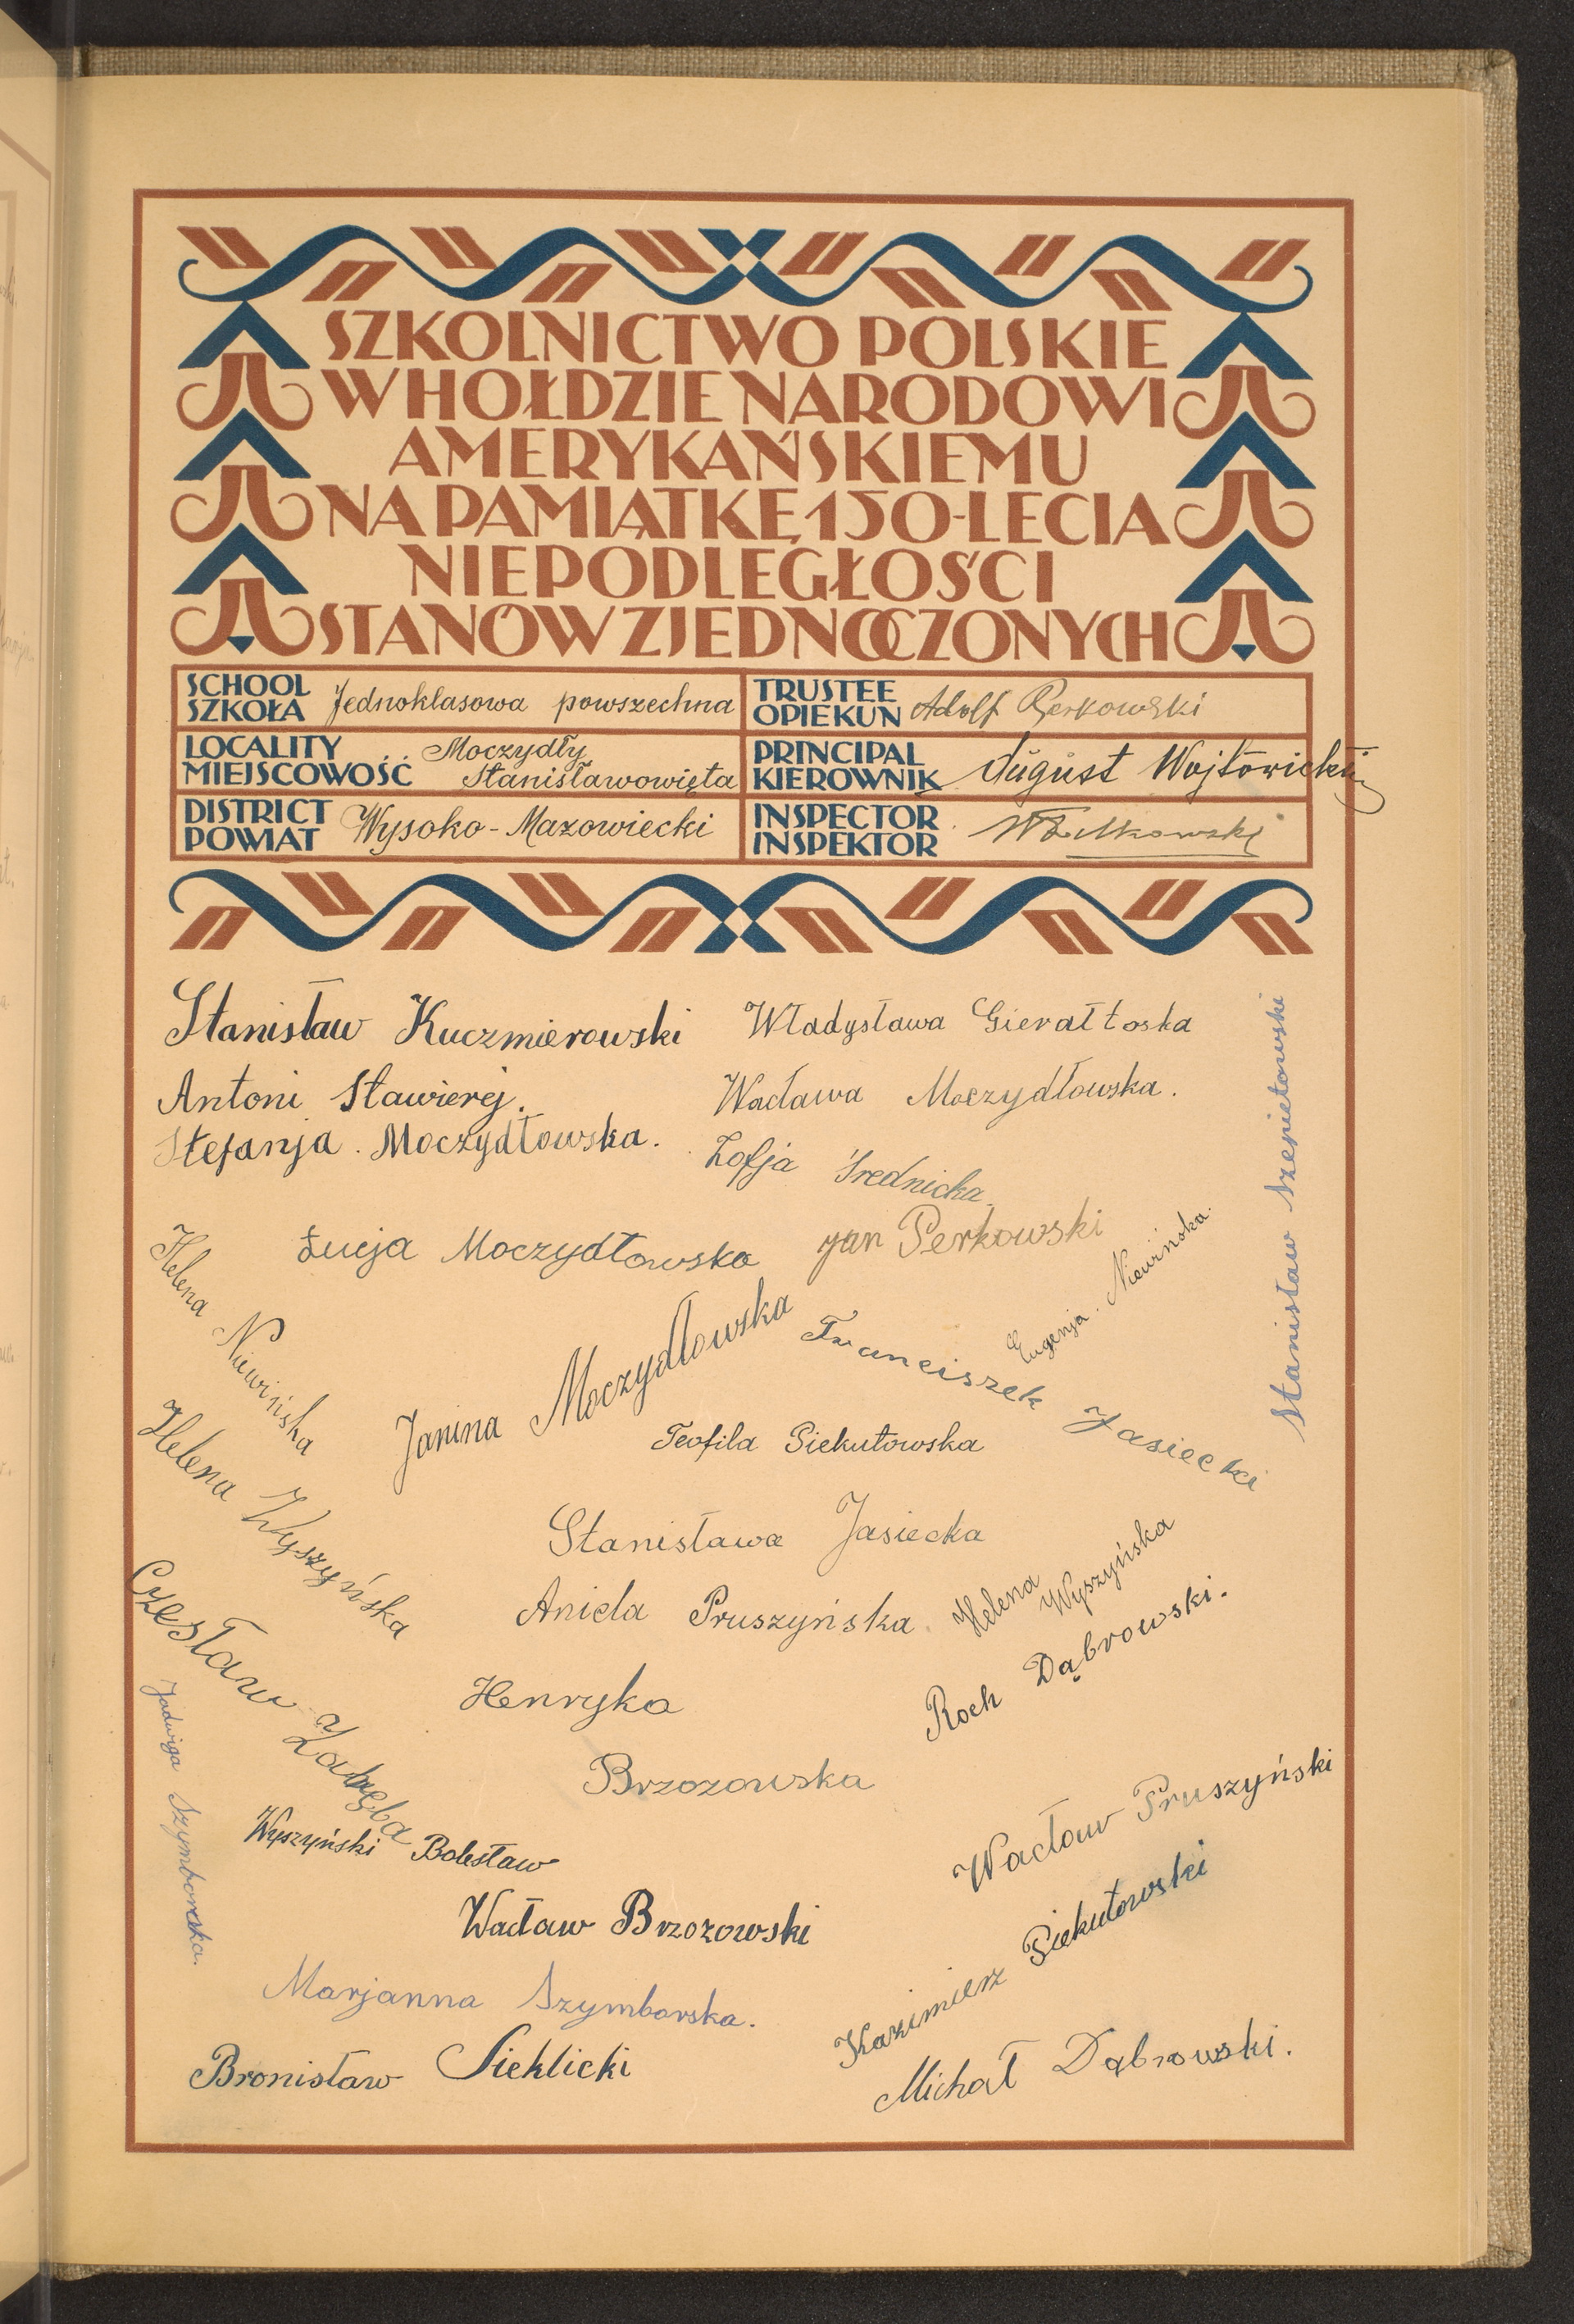 SZKOLNICTWO POLSKIE
W HOŁDZIE NARODOWI
AMERYKAŃSKIEMU
NA PAMIĄTKĘ 150-LECIA
NIEPODLEGŁOŚCI
STANÓW ZJEDNOCZONYCH
SCHOOL
SZKOŁA Jednoklasowa powszechna
TRUSTEE
OPIEKUN Adolf Perkowski
LOCALITY Moczydły
MIEJSCOWOŚĆ Stanisławowięta
PRINCIPAL
KIEROWNIK August Wojtowicki
DISTRICT
POWIAT Wysoko-Mazowiecki
INSPECTOR
INSPEKTOR
Stanisław Kuczmierowski
Władysława Gierałtoska
Antoni Stawierej.
Wacława Moczydłowska.
Stefanja. Moczydłowska.
Zofja Średnicka
Stanisław Szepietowski
Łucja Moczydłowska
Jan Perkowski
Helena Niewińska
Eugenja. Niewińska.
Janina Moczydłowska
Franciszek Jasiecki
Teofila Siekutowska
Helena Wyszyńska
Stanisława Jasiecka
Aniela Pruszyńska.
Helena
Wyszyńska
Czesław Zaręba
Roch Dąbrowski.
Henryka
Brzozowska
Jadwiga Szymborska.
Wyszyński Bolesław
Wacław Pruszyński
Wacław Brzozowski
Kazimierz Siekutowski
Marjanna Szymborska.
Bronisław Sieklicki
Michał Dąbrowski.